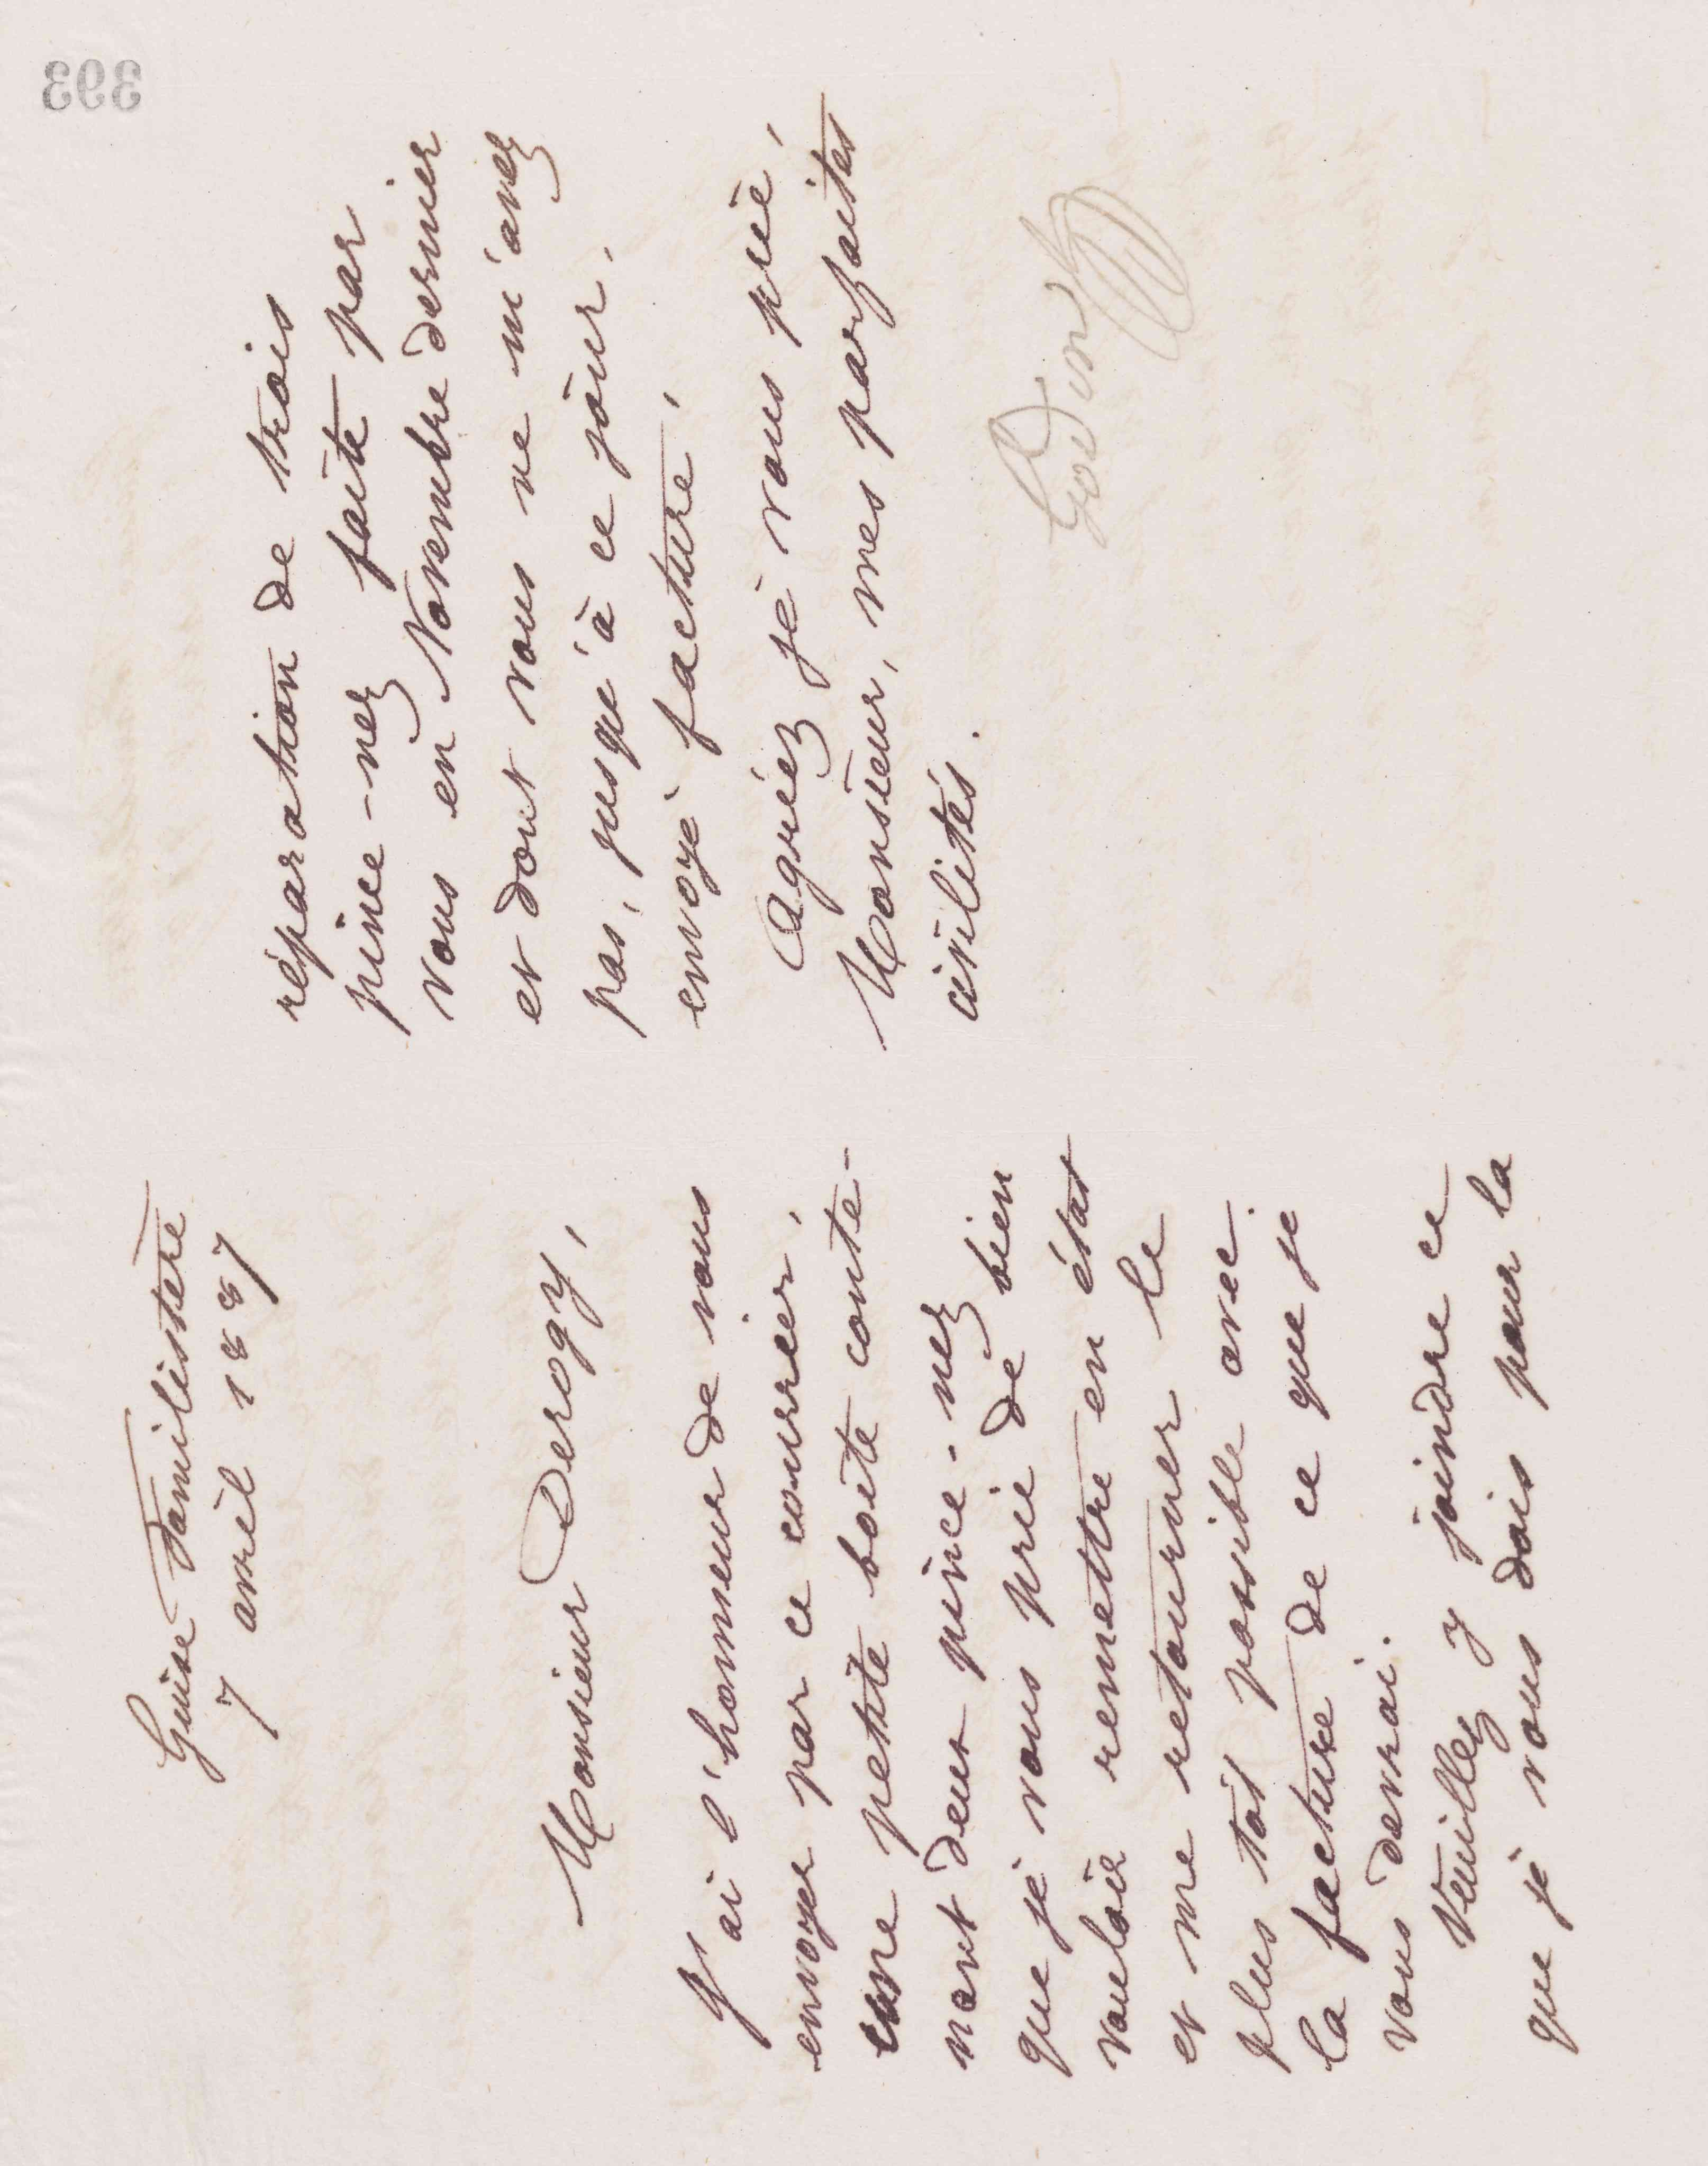 393
Guise-Familistère
7 avril 1887
Monsieur Derogy,
J'ai l'honneur de vous
envoyer par ce courrier,
une petite boîte conte-
nant deux pince-nez
que je vous prie de bien
vouloir remettre en état
et me retourner le
plus tôt possible avec
la facture de ce que je
vous devrai.
Veuillez y joindre ce
que je vous dois pour la
réparation de trois
pince-nez faite par
vous en Novembre dernier
et dont vous ne m'avez
pas, jusqu'à ce jour,
envoyé facture.
Agréez je vous prie,
Monsieur, mes parfaites
civilités.
Godin